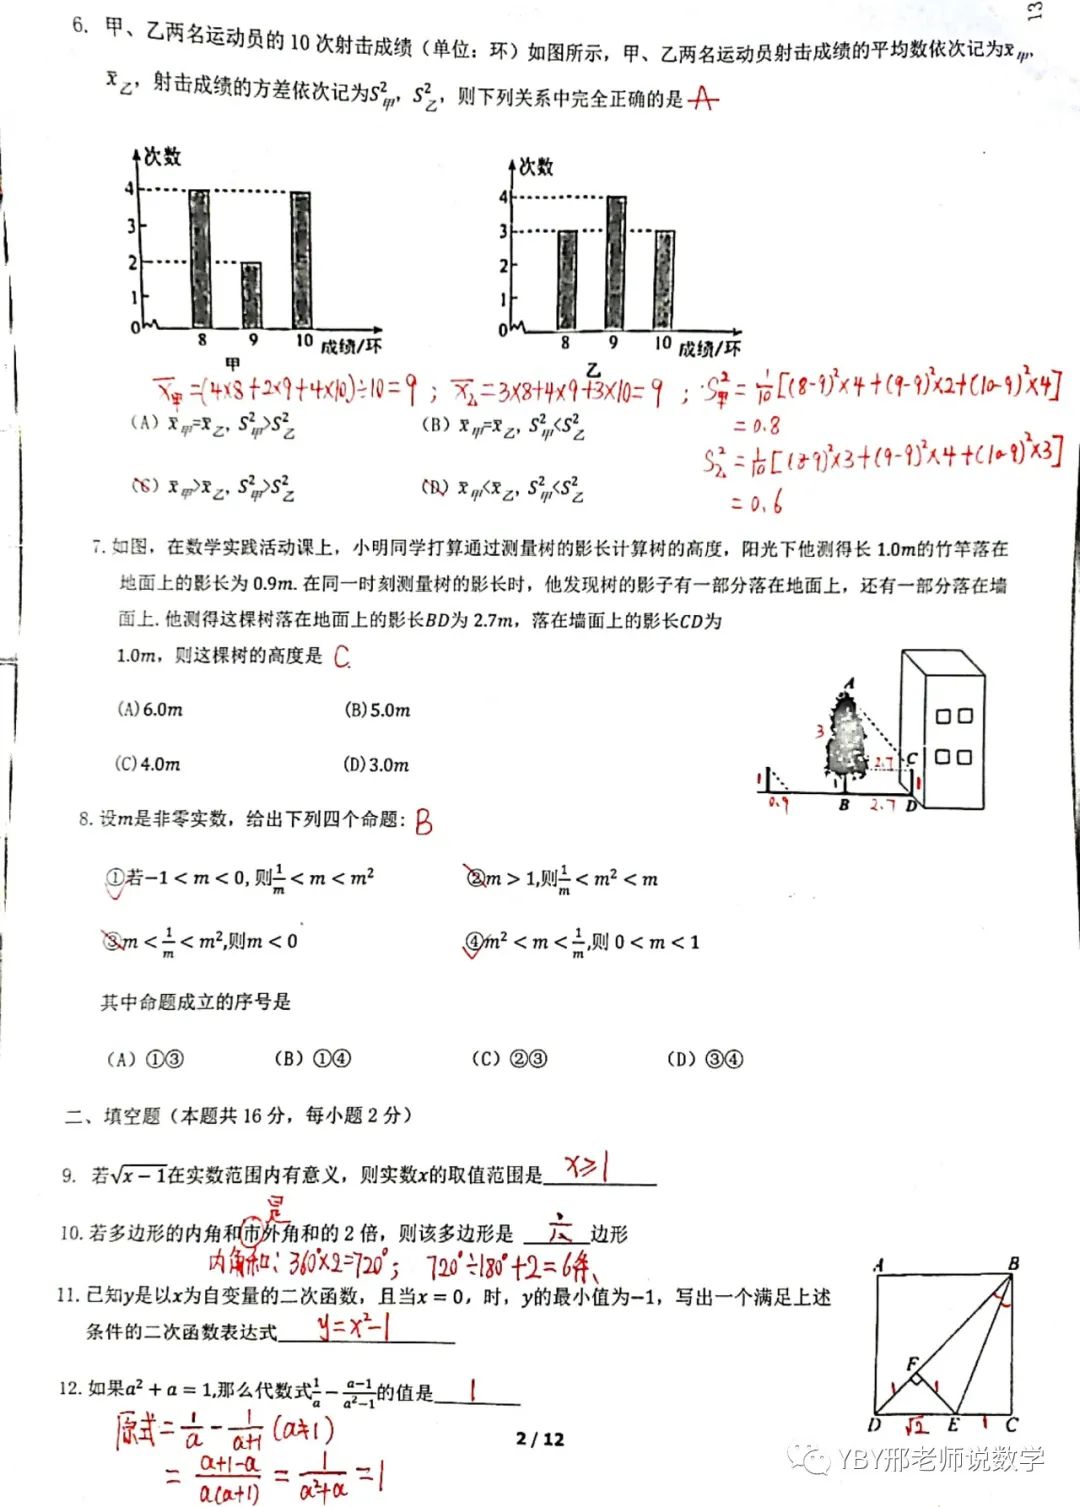 13
6. 甲、乙两名运动员的 10 次射击成绩（单位：环）如图所示，甲、乙两名运动员射击成绩的平均数依次记为x̄甲，
x̄乙，射击成绩的方差依次记为S²甲，S²乙，则下列关系中完全正确的是 A
次数
4
3
2
1
0
8 9 10 成绩/环
甲
次数
4
3
2
1
0
8 9 10 成绩/环
乙
x̄甲=(4×8+2×9+4×10)÷10=9 ; x̄乙=3×8+4×9+3×10=9 ; S²甲=1/10[(8-9)²×4+(9-9)²×2+(10-9)²×4]
=0.8
（A）x̄甲=x̄乙, S²甲>S²乙 （B）x̄甲=x̄乙, S²甲<S²乙
S²乙=1/10[(8-9)²×3+(9-9)²×4+(10-9)²×3]
=0.6
（C）x̄甲>x̄乙, S²甲>S²乙 （D）x̄甲<x̄乙, S²甲<S²乙
7. 如图，在数学实践活动课上，小明同学打算通过测量树的影长计算树的高度，阳光下他测得长 1.0m的竹竿落在
地面上的影长为 0.9m. 在同一时刻测量树的影长时，他发现树的影子有一部分落在地面上，还有一部分落在墙
面上. 他测得这棵树落在地面上的影长BD为 2.7m，落在墙面上的影长CD为
1.0m，则这棵树的高度是 C.
(A)6.0m (B)5.0m
(C)4.0m (D)3.0m
A
3
2.7 C
1 1 1
0.9 B 2.7 D
8. 设m是非零实数，给出下列四个命题: B
①若−1 < m < 0, 则1/m < m < m² ②m > 1,则1/m < m² < m
③m < 1/m < m²,则m < 0 ④m² < m < 1/m,则 0 < m < 1
其中命题成立的序号是
（A）①③ （B）①④ （C）②③ （D）③④
二、填空题（本题共 16 分，每小题 2 分）
9. 若√x − 1在实数范围内有意义，则实数x的取值范围是 x≥1
是
10. 若多边形的内角和市外角和的 2 倍，则该多边形是 六 边形
内角和: 360°×2=720°; 720°÷180°+2=6条、
11. 已知y是以x为自变量的二次函数，且当x = 0，时，y的最小值为−1，写出一个满足上述
条件的二次函数表达式 y=x²-1
A B
F
1 1
D √2 E 1 C
12. 如果a² + a = 1,那么代数式1/a − a−1/a²−1的值是 1
原式=1/a-1/a+1 (a≠1)
=a+1-a/a(a+1)=1/a²+a=1
2 / 12
YBY邢老师说数学